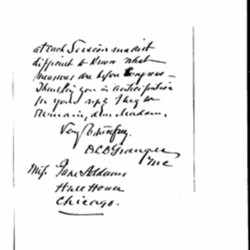 at each Session make it
difficult to know what
measures are before Congress –
Thanking you in anticipation
for your reply I beg to
remain, dear Madam,
Very Truly
Miss Jane Addams
Hull House
Chicago.